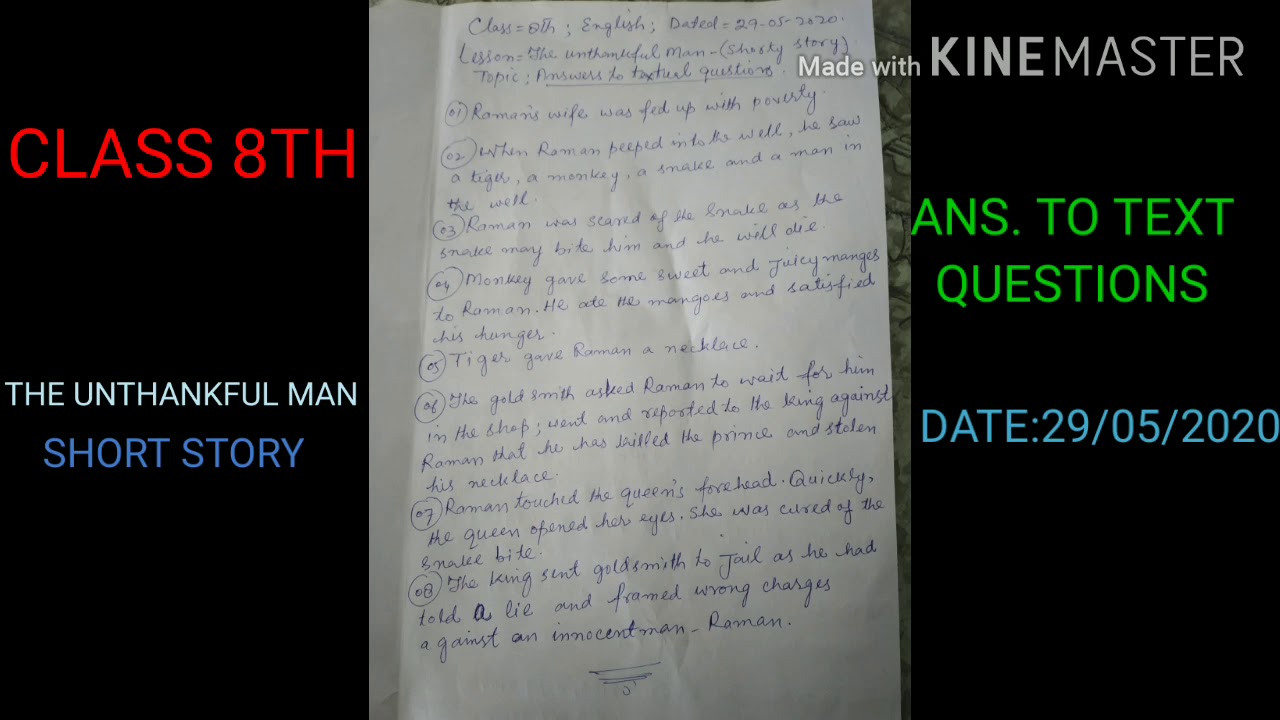 CLASS 8TH
THE UNTHANKFUL MAN
SHORT STORY
Class = 8th ; English ; Dated = 29-05-2020.
Lesson = The unthankful Man - (Shorty story)
Topic ; Answers to textual questions.
01 Raman's wife was fed up with poverty.
02 When Raman peeped into the well, he saw
a tiger, a monkey, a snake and a man in
the well.
03 Raman was scared of the snake as the
snake may bite him and he will die.
04 Monkey gave some sweet and juicy manges
to Raman. He ate the mangoes and satisfied
his hunger.
05 Tiger gave Raman a necklace.
06 The goldsmith asked Raman to wait for him
in the shop; went and reported to the king against
Raman that he has killed the prince and stolen
his necklace.
07 Raman touched the queen's forehead. Quickly,
the queen opened her eyes. She was cured of the
snake bite.
08 The king sent goldsmith to Jail as he had
told a lie and framed wrong charges
against an innocent man - Raman.
Made with KINEMASTER
ANS. TO TEXT
QUESTIONS
DATE:29/05/2020